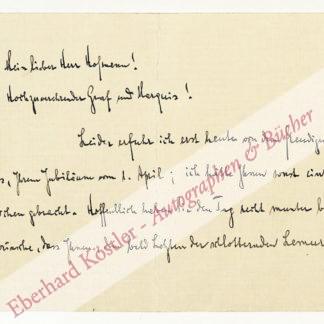 Mein lieber Herr Hofmann!
Hochzuverehrender Graf und Marquis!
Leider erfahr ich erst heute von dem freudigen
Ihrem Jubiläum vom 1. April; ich hätte Ihnen sonst ein
gebracht. Hoffentlich haben Sie den Tag recht munter
dass Ihnen der
Eberhard Köstler - Autographen & Bücher